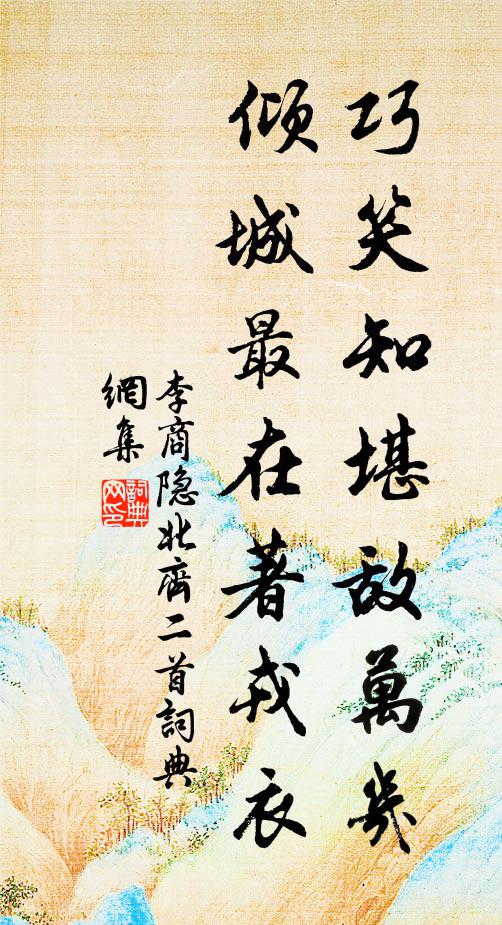 巧笑知堪敌萬幾
倾城最在著戎衣
李商隐北齊二首詞典
網集
詞典
网印